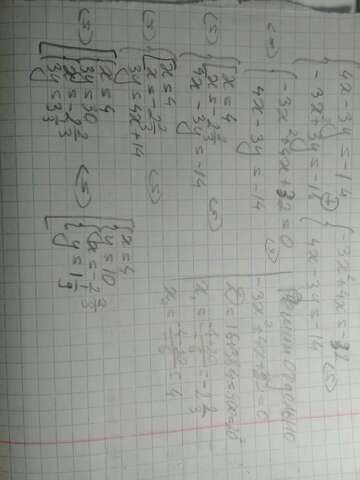 4x-3y=-14
-3x²+3y=-18 ⊕
-3x²+4x=-32
4x-3y=-14 (=)
(=) -3x²+4x+32=0
4x-3y=-14 (=)
Решим отдельно
-3x²+4x+32=0
x₁=\frac{-4+20}{-6}=-2\frac{2}{3}
x₂=\frac{-4-20}{-6}=4
(=) x=4
x=-2\frac{2}{3}
4x-3y=-14 (=)
(=) x=4
x=-2\frac{2}{3}
3y=4x+14 (=)
(=) x=4
3y=30
x=-2\frac{2}{3}
3y=3\frac{1}{3}
(=) x=4
y=10
x=-2\frac{2}{3}
y=1\frac{1}{9}